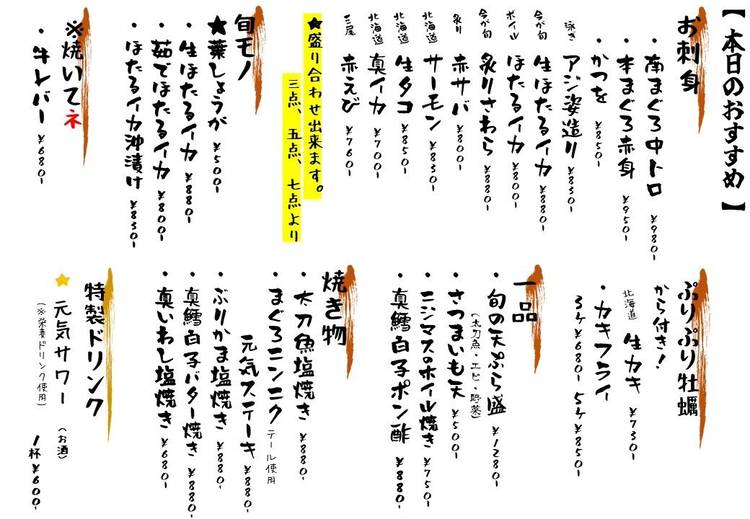 【本日のおすすめ】
お刺身
・南まぐろ中トロ ¥980-
・本まぐろ赤身 ¥950-
・かつを ¥850-
泳ぎ アジ姿造り ¥830-
今が旬 生ほたるイカ ¥880-
ボイル ほたるイカ ¥800-
今が旬 炙りさわら ¥880-
炙り 赤サバ ¥800-
北海道 サーモン ¥830-
北海道 生タコ ¥850-
北海道 真イカ ¥700-
三尾 赤えび ¥760-
★盛り合わせ出来ます。
三点、五点、七点より
旬モノ
★葉しょうが ¥500-
・生ほたるイカ ¥880-
・茹でほたるイカ ¥800-
・ほたるイカ沖漬け ¥830-
※焼いてネ
・牛レバー ¥680-
ぷりぷり牡蠣
から付き!
北海道 生カキ ¥730-
・カキフライ
3ケ¥680- 5ケ¥850-
一品
・旬の天ぷら盛 ¥1280-
(太刀魚・エビ・野菜)
・さつまいも天 ¥500-
・ニジマスのホイル焼き ¥750-
・真鱈白子ポン酢 ¥880-
焼き物
・太刀魚塩焼き ¥880-
・まぐろニンニク テール使用
元気ステーキ ¥880-
・ぶりかま塩焼き ¥880-
・真鱈白子バター焼き ¥880-
・真いわし塩焼き ¥680-
特製ドリンク
★ 元気サワー (お酒) 1杯¥600-
(※栄養ドリンク使用)